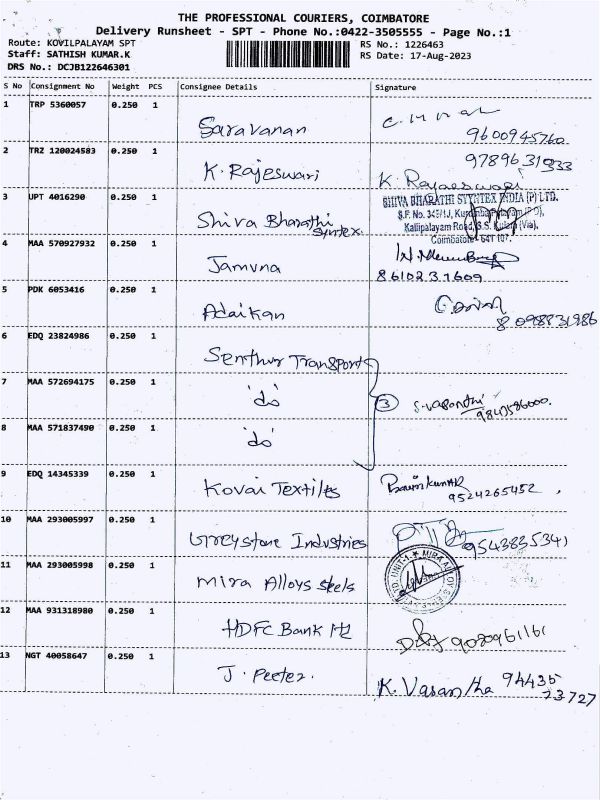 THE PROFESSIONAL COURIERS, COIMBATORE
Delivery Runsheet - SPT - Phone No.:0422-3505555 - Page No.:1
Route: KOVILPALAYAM SPT RS No.: 1226463
Staff: SATHISH KUMAR.K RS Date: 17-Aug-2023
DRS No.: DCJB122646301
S No Consignment No Weight PCS Consignee Details Signature
1 TRP 5360057 0.250 1 Saravanan 9600945760
2 TRZ 120024583 0.250 1 K. Rajeswari 9789631933 K. Rajaeswari
3 UPT 4016290 0.250 1 Shiva Bharathi Syntex.
SHIVA BHARATHI SYNTEX INDIA (P) LTD.
Kalipalayam Road, S.S. Kulam (Via),
Coimbatore - 641 107.
4 MAA 570927932 0.250 1 Jamuna 8610231609
5 PDK 6053416 0.250 1 Adaikan 8098831986
6 EDQ 23824986 0.250 1 Senthur Transports
7 MAA 572694175 0.250 1 'do' 3 S. Vasanthi
8 MAA 571837490 0.250 1 'do'
9 EDQ 14345339 0.250 1 Kovai Textiles 9524265452
10 MAA 293005997 0.250 1 Greystone Industries 9543835341
11 MAA 293005998 0.250 1 Mira Alloys steels
12 MAA 931318980 0.250 1 HDFC Bank 9080961161
13 NGT 40058647 0.250 1 J. Peeter. K. Vasantha 94435
23727